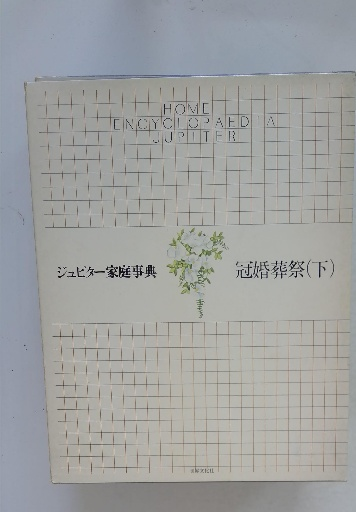 HOME
ENCYCLOPAEDIA
JUPITER
ジュピター家庭事典
冠婚葬祭(下)